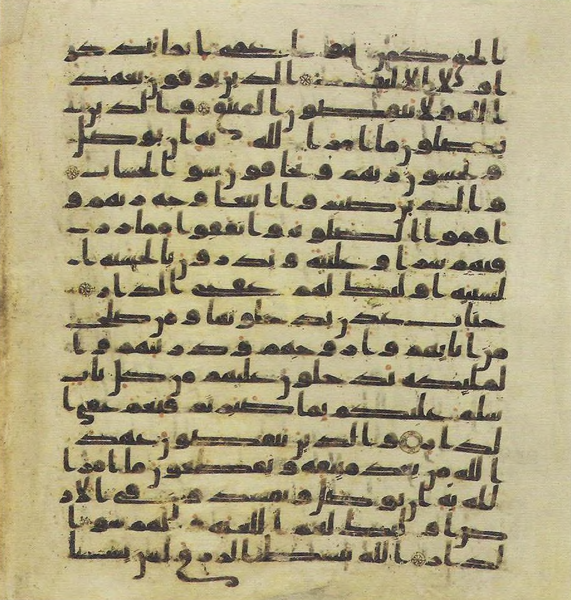 الحق كمن هو اعمى انما يتذكر
اولوا الالبب الذين يوفون بعهد
الله ولا ينقضون الميثق والذين
يصلون ما امر الله به ان يوصل
ويخشون ربهم ويخافون سو الحساب
والذين صبروا ابتغا وجه ربهم و
اقاموا الصلوة وانفقوا مما رز
قنهم سرا وعلنية ويدرون بالحسنة ا
لسيئة اولئك لهم عقبى الدار
جنات عدن يدخلونها ومن صلح
من ابائهم وازوجهم وذريتهم وا
لملئكة يدخلون عليهم من كل باب
سلم عليكم بما صبرتم فنعم عقبى ا
لدار والذين ينقضون عهد
الله من بعد ميثقه ويقطعون ما امر ا
لله به ان يوصل ويفسدون في الار
ض اولئك لهم اللعنة ولهم سو ا
لدار الله يبسط الرزق لمن يشا